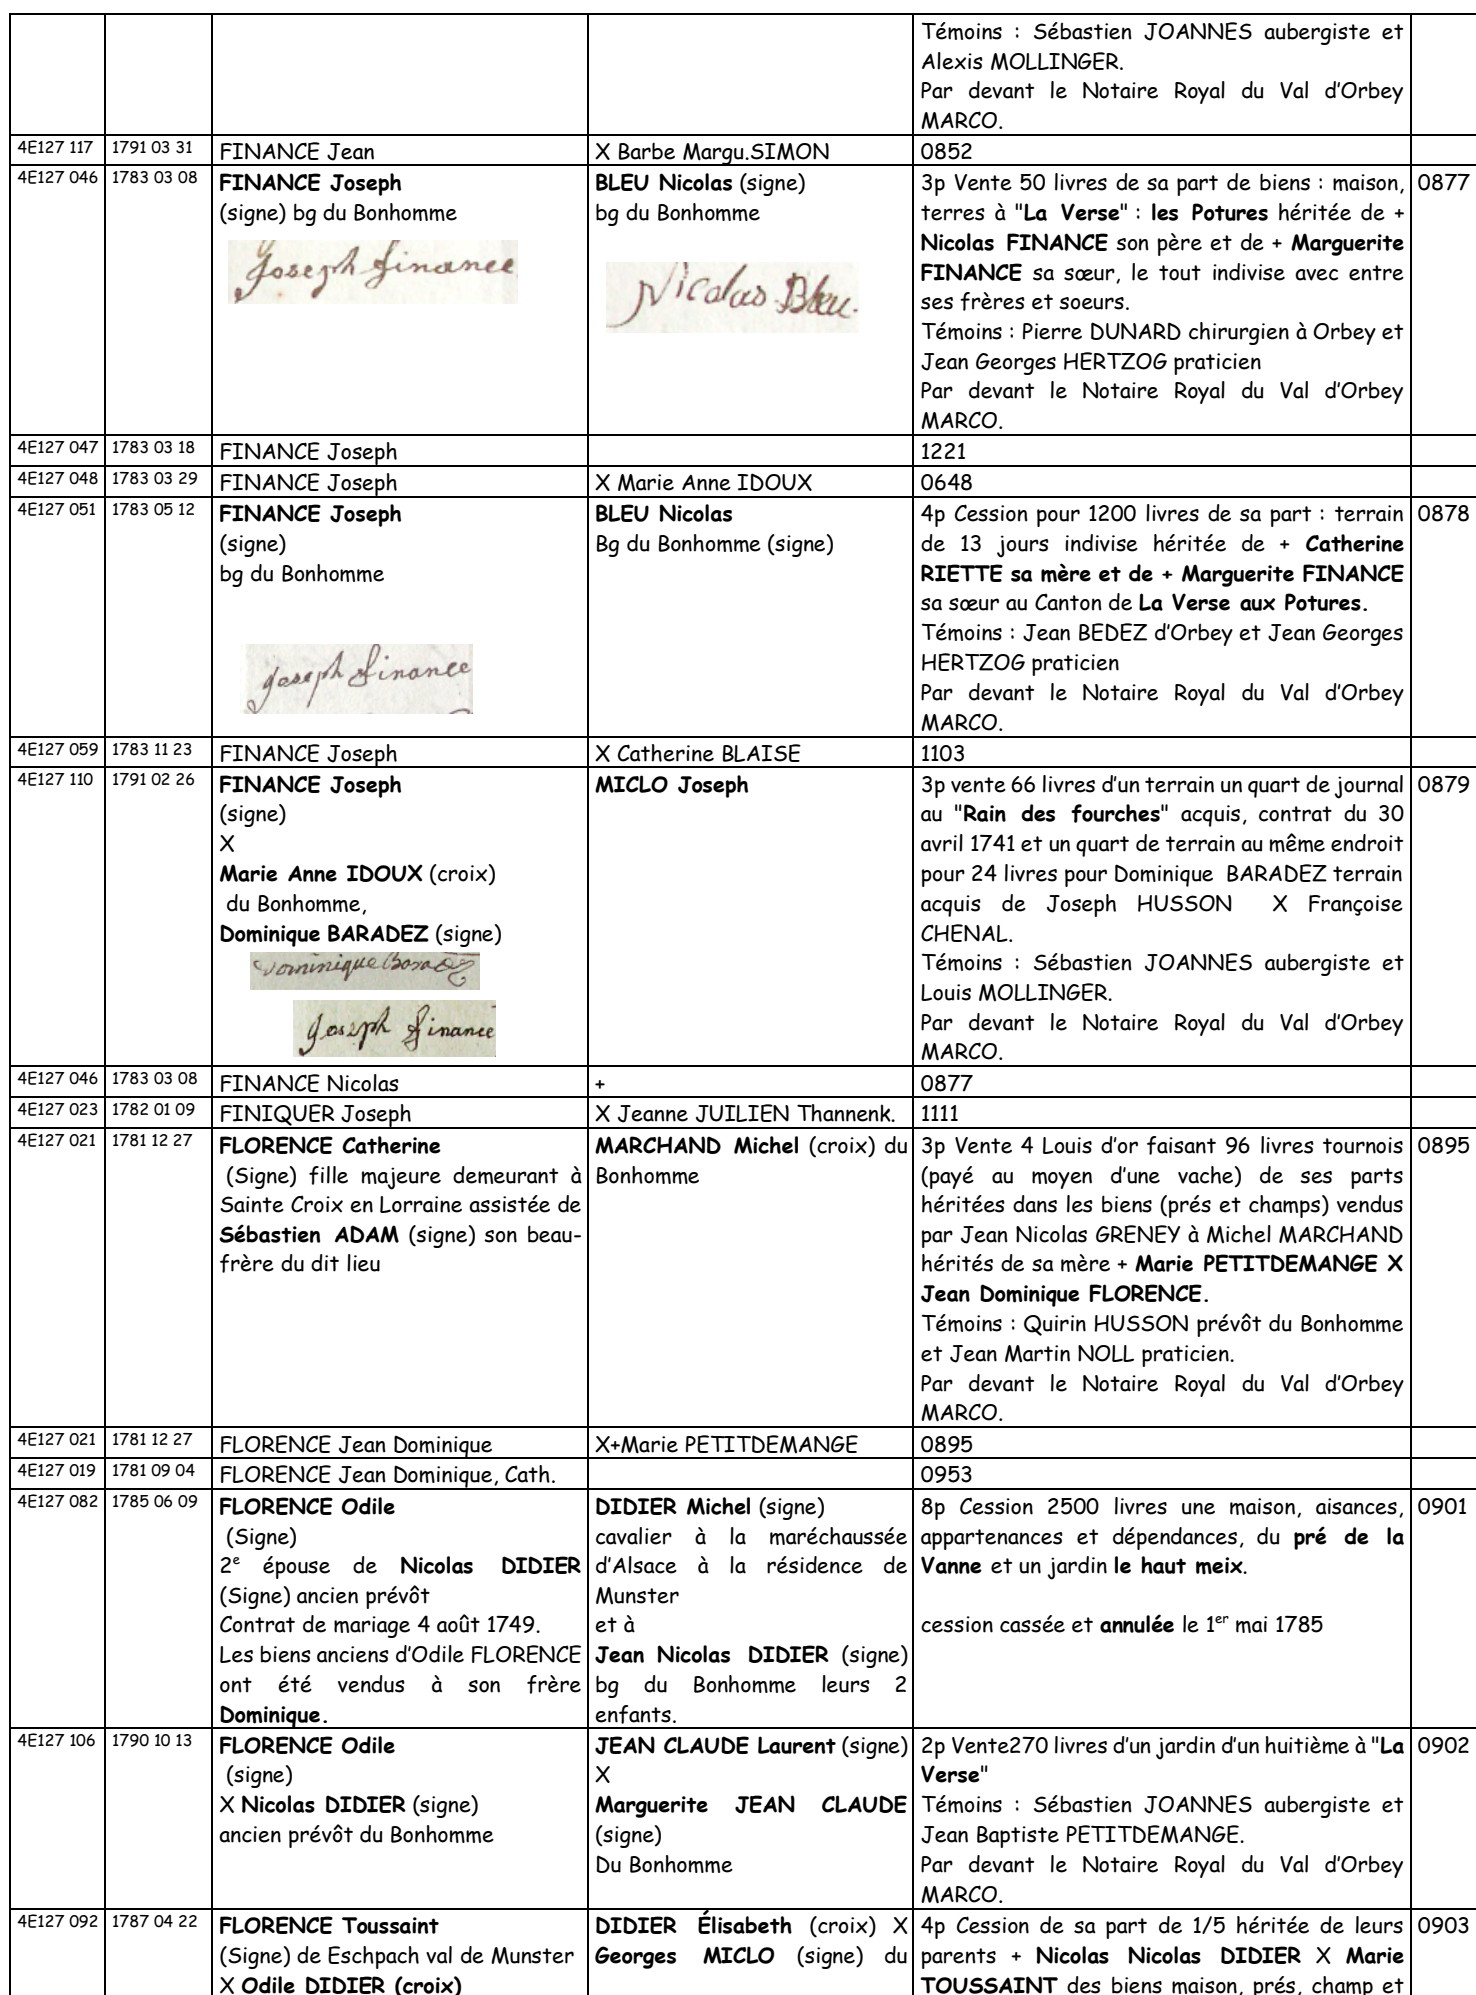 Témoins : Sébastien JOANNES aubergiste et
Alexis MOLLINGER.
Par devant le Notaire Royal du Val d'Orbey
MARCO.
4E127 117 1791 03 31 FINANCE Jean X Barbe Margu.SIMON 0852
4E127 046 1783 03 08
FINANCE Joseph
(signe) bg du Bonhomme
Joseph finance
BLEU Nicolas (signe)
bg du Bonhomme
Nicolas Bleu.
3p Vente 50 livres de sa part de biens : maison,
terres à "La Verse" : les Potures héritée de +
Nicolas FINANCE son père et de + Marguerite
FINANCE sa sœur, le tout indivise avec entre
ses frères et soeurs.
Témoins : Pierre DUNARD chirurgien à Orbey et
Jean Georges HERTZOG praticien
Par devant le Notaire Royal du Val d'Orbey
MARCO.
0877
4E127 047 1783 03 18 FINANCE Joseph 1221
4E127 048 1783 03 29 FINANCE Joseph X Marie Anne IDOUX 0648
4E127 051 1783 05 12
FINANCE Joseph
(signe)
bg du Bonhomme
joseph finance
BLEU Nicolas
Bg du Bonhomme (signe)
4p Cession pour 1200 livres de sa part : terrain
de 13 jours indivise héritée de + Catherine
RIETTE sa mère et de + Marguerite FINANCE
sa sœur au Canton de La Verse aux Potures.
Témoins : Jean BEDEZ d'Orbey et Jean Georges
HERTZOG praticien
Par devant le Notaire Royal du Val d'Orbey
MARCO.
0878
4E127 059 1783 11 23 FINANCE Joseph X Catherine BLAISE 1103
4E127 110 1791 02 26
FINANCE Joseph
(signe)
X
Marie Anne IDOUX (croix)
du Bonhomme,
Dominique BARADEZ (signe)
Dominique Baradez
joseph finance
MICLO Joseph
3p vente 66 livres d'un terrain un quart de journal
au "Rain des fourches" acquis, contrat du 30
avril 1741 et un quart de terrain au même endroit
pour 24 livres pour Dominique BARADEZ terrain
acquis de Joseph HUSSON X Françoise
CHENAL.
Témoins : Sébastien JOANNES aubergiste et
Louis MOLLINGER.
Par devant le Notaire Royal du Val d'Orbey
MARCO.
0879
4E127 046 1783 03 08 FINANCE Nicolas + 0877
4E127 023 1782 01 09 FINIQUER Joseph X Jeanne JUILIEN Thannenk. 1111
4E127 021 1781 12 27
FLORENCE Catherine
(Signe) fille majeure demeurant à
Sainte Croix en Lorraine assistée de
Sébastien ADAM (signe) son beau-
frère du dit lieu
MARCHAND Michel (croix) du
Bonhomme
3p Vente 4 Louis d'or faisant 96 livres tournois
(payé au moyen d'une vache) de ses parts
héritées dans les biens (prés et champs) vendus
par Jean Nicolas GRENEY à Michel MARCHAND
hérités de sa mère + Marie PETITDEMANGE X
Jean Dominique FLORENCE.
Témoins : Quirin HUSSON prévôt du Bonhomme
et Jean Martin NOLL praticien.
Par devant le Notaire Royal du Val d'Orbey
MARCO.
0895
4E127 021 1781 12 27 FLORENCE Jean Dominique X+Marie PETITDEMANGE 0895
4E127 019 1781 09 04 FLORENCE Jean Dominique, Cath. 0953
4E127 082 1785 06 09
FLORENCE Odile
(Signe)
2e épouse de Nicolas DIDIER
(Signe) ancien prévôt
Contrat de mariage 4 août 1749.
Les biens anciens d'Odile FLORENCE
ont été vendus à son frère
Dominique.
DIDIER Michel (signe)
cavalier à la maréchaussée
d'Alsace à la résidence de
Munster
et à
Jean Nicolas DIDIER (signe)
bg du Bonhomme leurs 2
enfants.
8p Cession 2500 livres une maison, aisances,
appartenances et dépendances, du pré de la
Vanne et un jardin le haut meix.
cession cassée et annulée le 1er mai 1785
0901
4E127 106 1790 10 13
FLORENCE Odile
(signe)
X Nicolas DIDIER (signe)
ancien prévôt du Bonhomme
JEAN CLAUDE Laurent (signe)
X
Marguerite JEAN CLAUDE
(signe)
Du Bonhomme
2p Vente270 livres d'un jardin d'un huitième à "La
Verse"
Témoins : Sébastien JOANNES aubergiste et
Jean Baptiste PETITDEMANGE.
Par devant le Notaire Royal du Val d'Orbey
MARCO.
0902
4E127 092 1787 04 22
FLORENCE Toussaint
(Signe) de Eschpach val de Munster
X Odile DIDIER (croix)
DIDIER Élisabeth (croix) X
Georges MICLO (signe) du
4p Cession de sa part de 1/5 héritée de leurs
parents + Nicolas Nicolas DIDIER X Marie
TOUSSAINT des biens maison, prés, champ et
0903